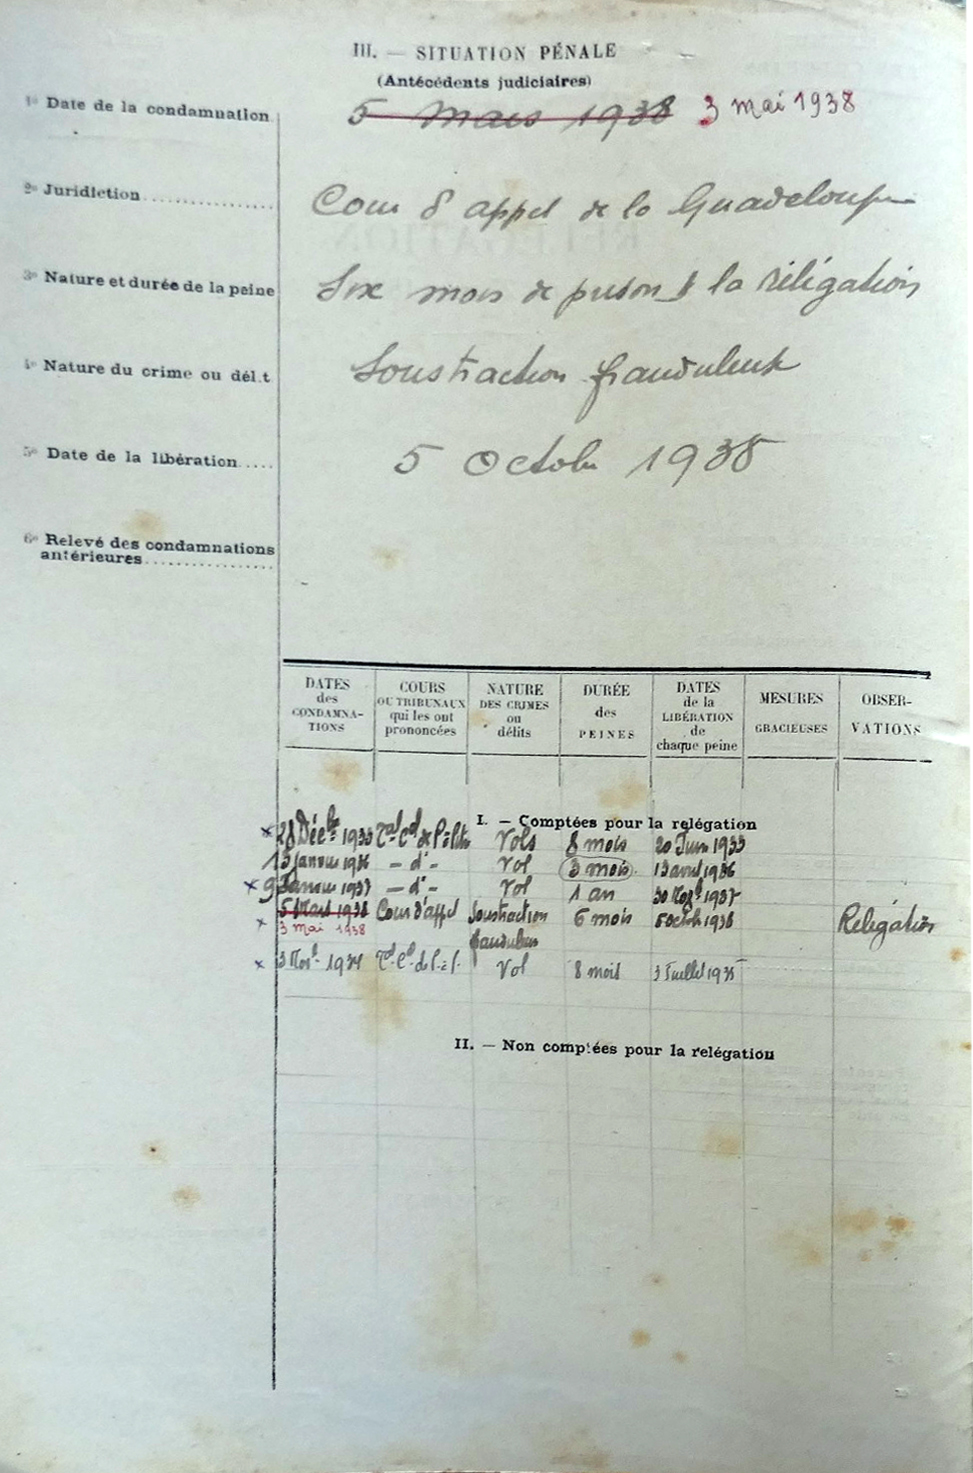 III. — SITUATION PÉNALE
(Antécédents judiciaires)
1° Date de la condamnation
5 Mars 1938 3 mai 1938
2° Juridiction
Cour d'appel de la Guadeloupe
3° Nature et durée de la peine
Six mois de prison & la rélégation
4° Nature du crime ou dél.t
Soustraction frauduleuse
5° Date de la libération
5 Octobre 1938
6° Relevé des condamnations
antérieures
DATES des CONDAMNATIONS
COURS OU TRIBUNAUX qui les ont prononcées
NATURE DES CRIMES ou délits
DURÉE des PEINES
DATES de la LIBÉRATION de chaque peine
MESURES GRACIEUSES
OBSERVATIONS
I. — Comptées pour la relégation
x 28 Déc 1933 Vols 8 mois 20 Juin 1933
13 janvier 1936 — d° — Vol 3 mois 13 avril 1936
x 9 1937 — d° — Vol 1 an 1937
5 Mars 1938 Cour d'appel Soustraction 6 mois 5 octob 1938 Relégation
x 3 mai 1938 frauduleus
x 3 Nov. 1934 Vol 8 mois 3 Juillet 1935
II. — Non comptées pour la relégation